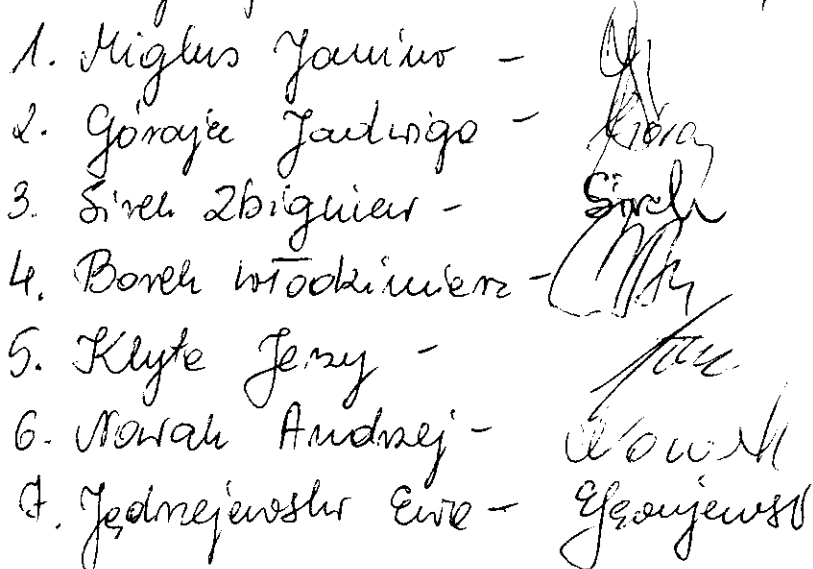 1. Miglus Janina -
2. Górajek Jadwiga - Góraj
3. Sirek Zbigniew - Sirek
4. Borek Włodzimierz -
5. Kłyta Jerzy -
6. Nowak Andrzej - Nowak
7. Jędrzejewska Ewa -